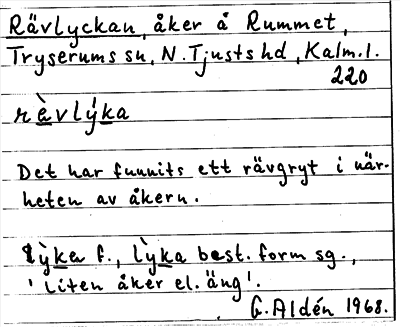 Rävlyckan, åker å Rummet,
Tryserums sn, N. Tjusts hd, Kalm.l.
220
rὲvlýka
Det har funnits ett rävgryt i när-
heten av åkern.
lỳka f., lỳka best. form sg.,
'liten åker el. äng'.
G. Aldén 1968.